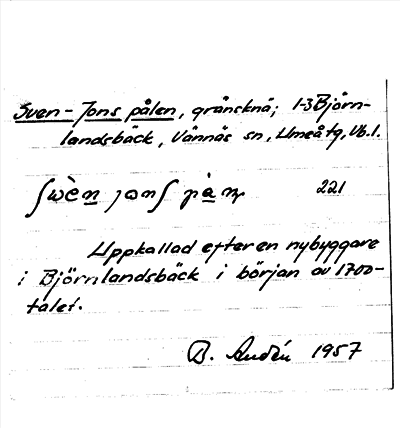 Sven-Jons pålen, gränsknä; 1-3 Björn-
landsbäck, Vännäs sn, Umeå tg, Vb.l.
221
Uppkallad efter en nybyggare
i Björnlandsbäck i början av 1700-
talet.
B. 1957